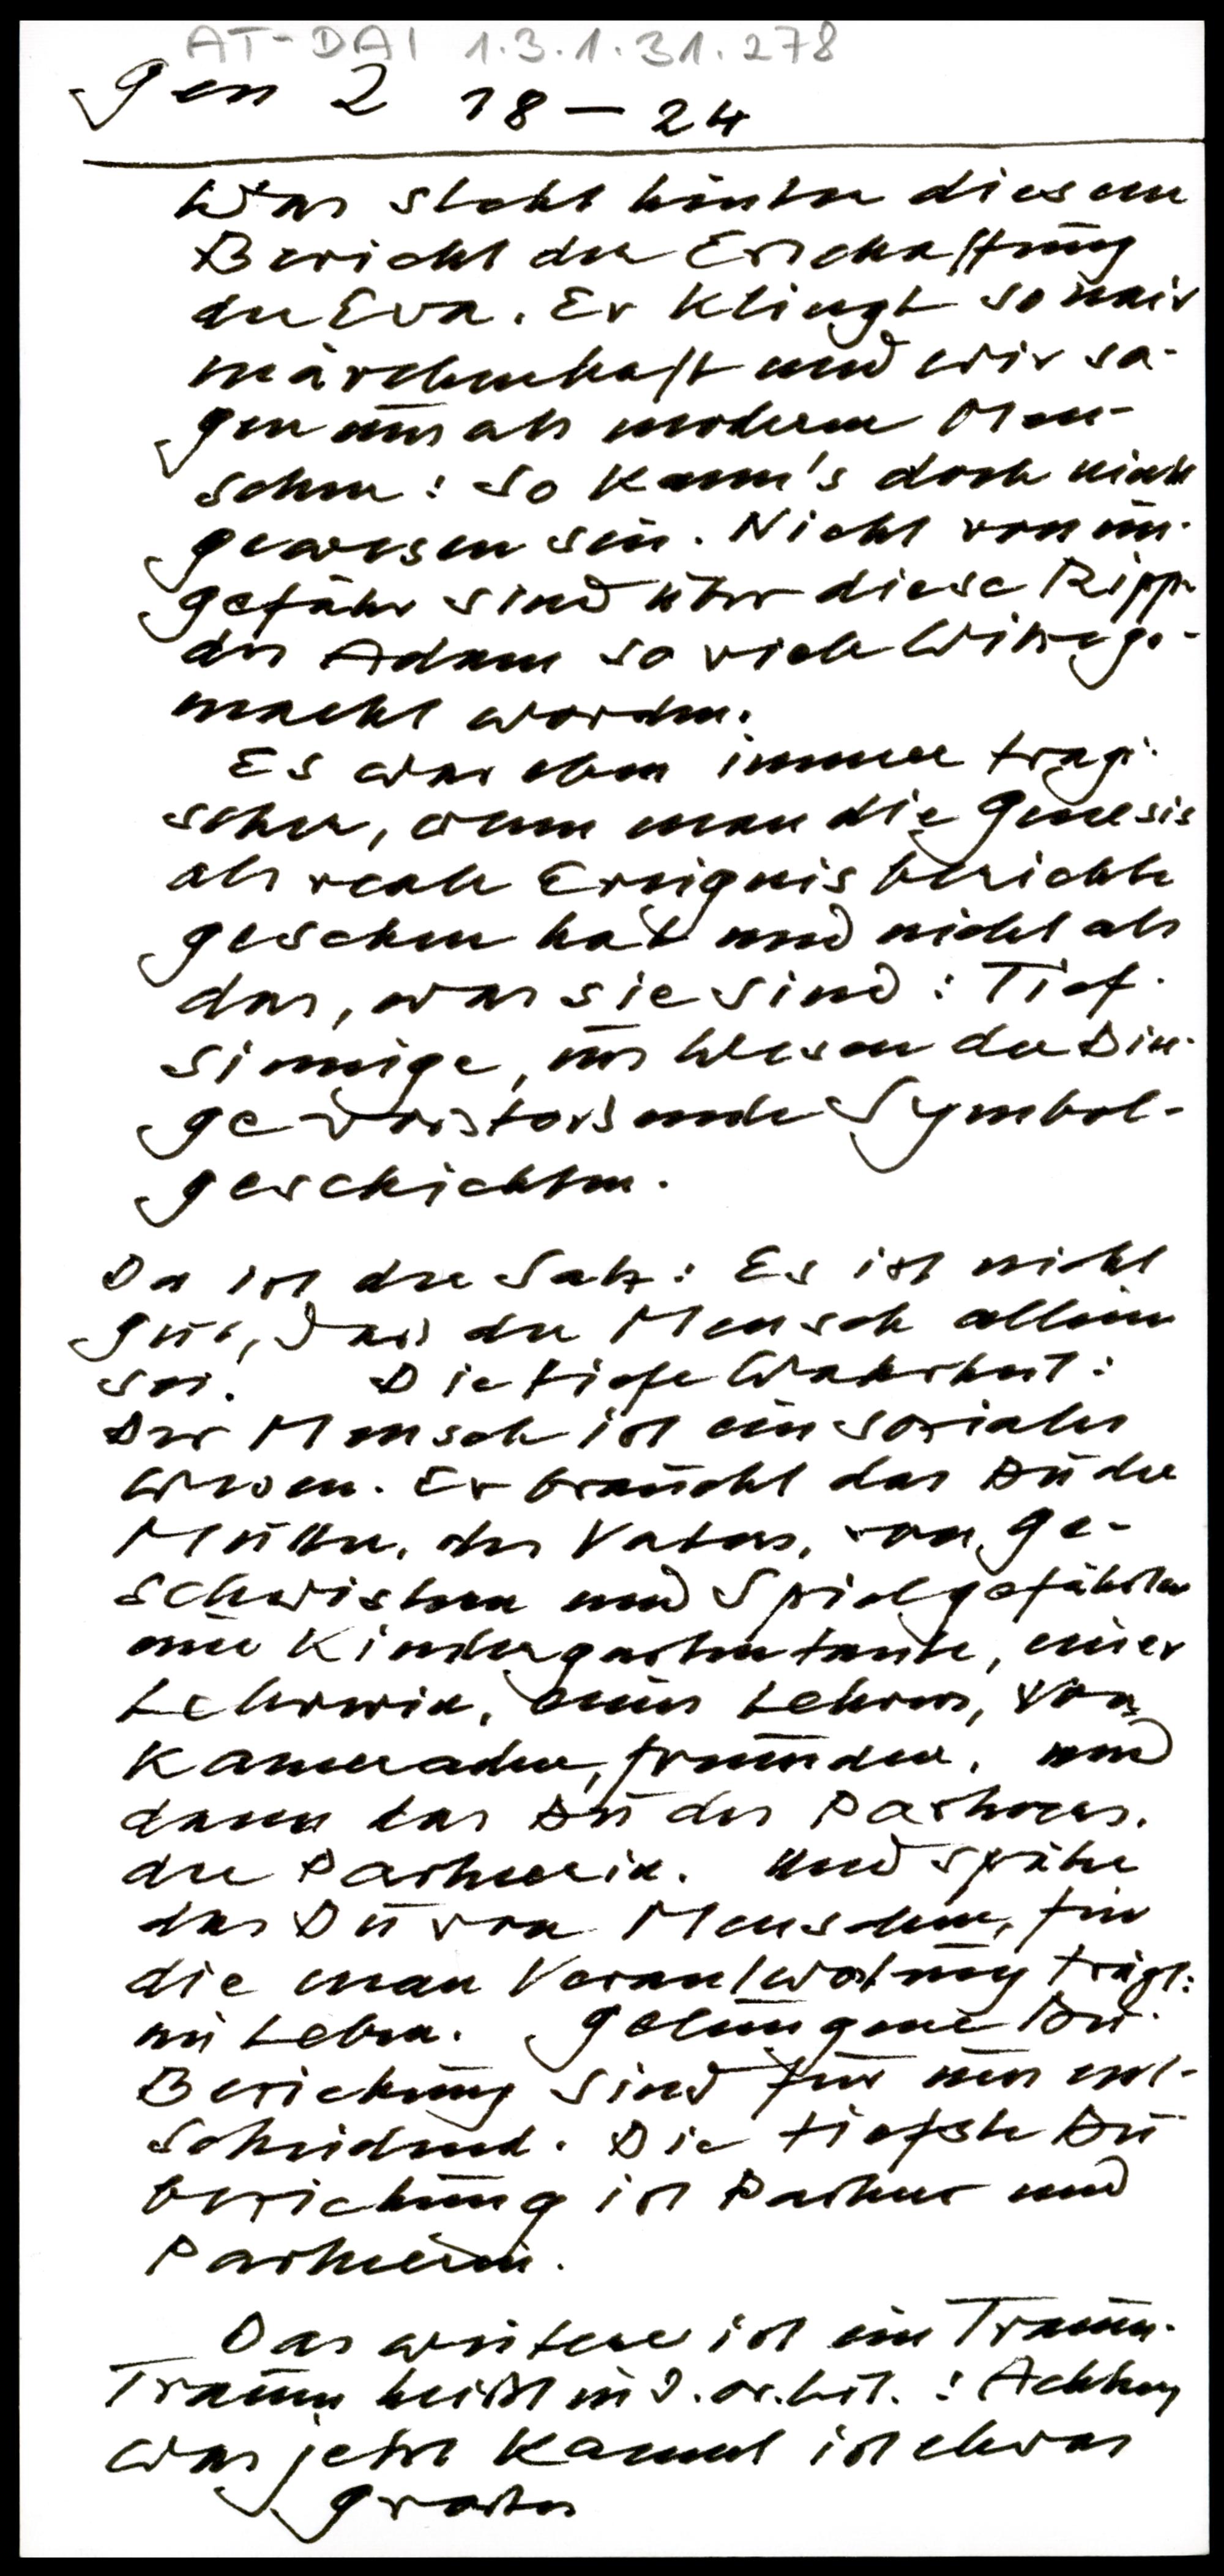 AT-DAI 1.3.1.31.278
Gen 2 18-24
Was steht hinter diesem
Bericht der Erschaffung
der Eva. Er klingt so naiv
märchenhaft und wir sa-
gen uns als moderne Men-
schen: So kann's doch nicht
gewesen sein. Nicht von un-
gefähr sind über diese Rippe
des Adam so viele Witze ge-
macht worden.
Es war eben immer tragi-
scher, wenn man die Genesis
als reale Ereignisberichte
gesehen hat und nicht als
das, was sie sind: Tief-
sinnige, ins Wesen der Din-
ge vorstossende Symbol-
geschichten.
Da ist der Satz: Es ist nicht
gut, dass der Mensch allein
sei. Die tiefe Wahrheit:
Der Mensch ist ein soziales
Wesen. Er braucht das Du der
Mutter, des Vaters, von Ge-
schwistern und Spielgefährten
einer Kindergartentante, einer
Lehrerin, eines Lehrers, von
Kameraden, Freunden, und
dann das Du des Partners,
der Partnerin. Und später
das Du von Menschen, für
die man Verantwortung trägt:
im Leben. Gelungene Du-
Beziehung sind für uns ent-
scheidend. Die tiefste Du
beziehung ist Partner und
Partnerin.
Das weitere ist ein Traum.
Traum heißt in d. : Achtung
was jetzt kommt ist etwas